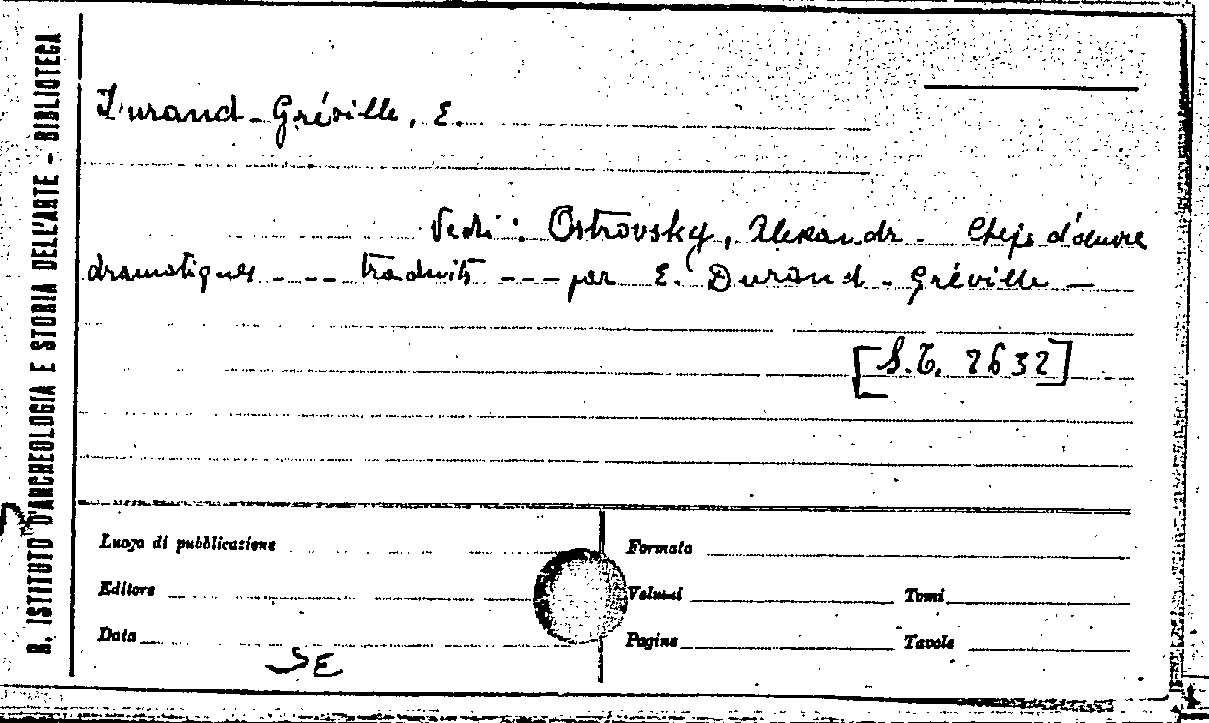 R. ISTITUTO D'ARCHEOLOGIA E STORIA DELL'ARTE - BIBLIOTECA
Durand-Gréville, E.
Vedi: Ostrovsky, Alexandr. Chefs d'œuvre
dramatiques --- traduits --- par E. Durand-Gréville —
[S.T. 2632]
Luogo di pubblicazione
Formato
Editore
Volumi
Tomi
Data
Pagine
Tavole
SE